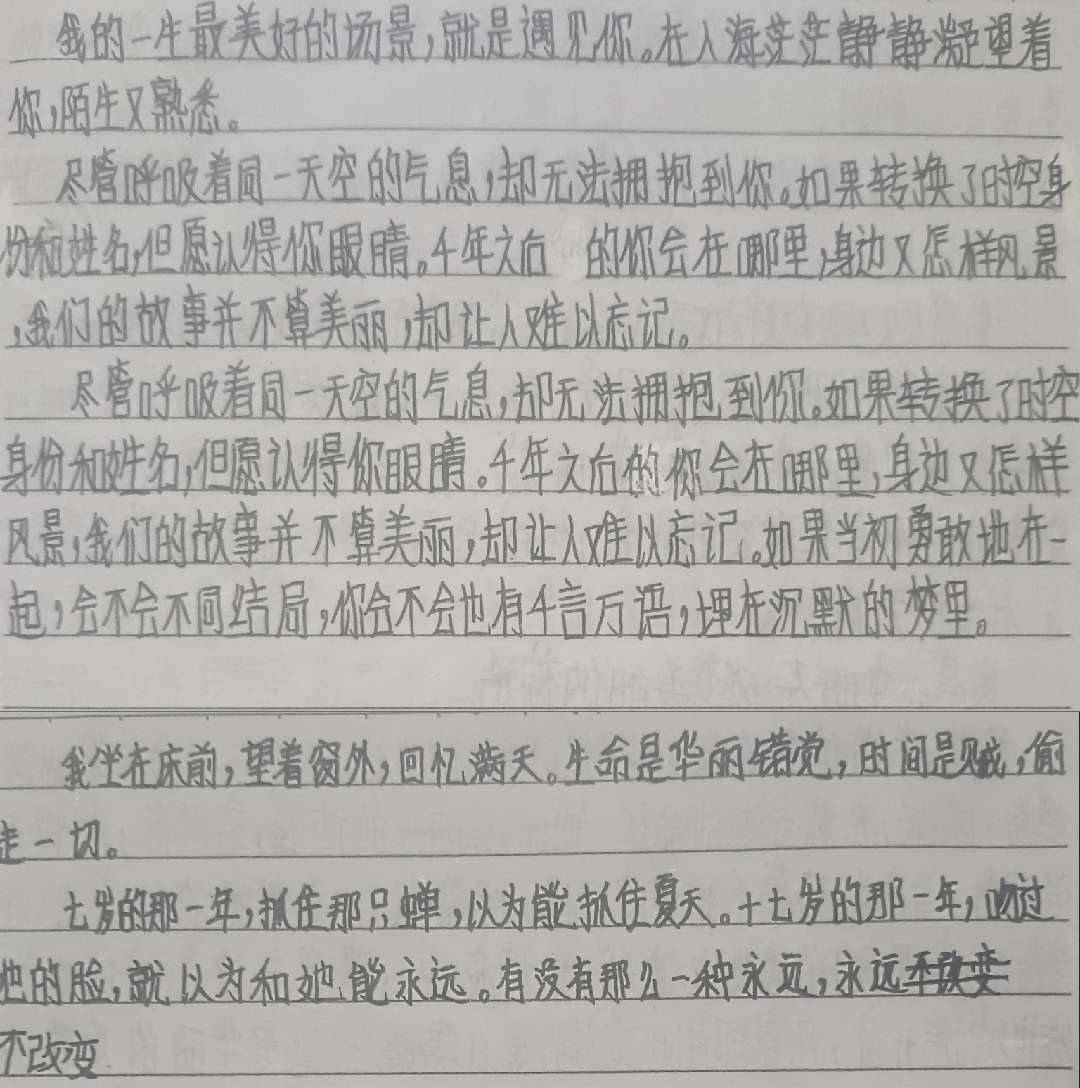 我的一生最美好的场景,就是遇见你。在人海茫茫静静凝望着
你,陌生又熟悉。
尽管呼吸着同一天空的气息,却无法拥抱到你。如果转换了时空身
份和姓名,但愿认得你眼睛。千年之后 的你会在哪里,身边又怎样风景
,我们的故事并不算美丽,却让人难以忘记。
尽管呼吸着同一天空的气息,却无法拥抱到你。如果转换了时空
身份和姓名,但愿认得你眼睛。千年之后的你会在哪里,身边又怎样
风景,我们的故事并不算美丽,却让人难以忘记。如果当初勇敢地在一
起,会不会不同结局,你会不会也有千言万语,埋在沉默的梦里。
我坐在床前,望着窗外,回忆满天。生命是华丽错觉,时间是贼,偷
走一切。
七岁的那一年,抓住那只蝉,以为能抓住夏天。十七岁的那一年,吻过
他的脸,就以为和她能永远。有没有那么一种永远,永远不改变
不改变